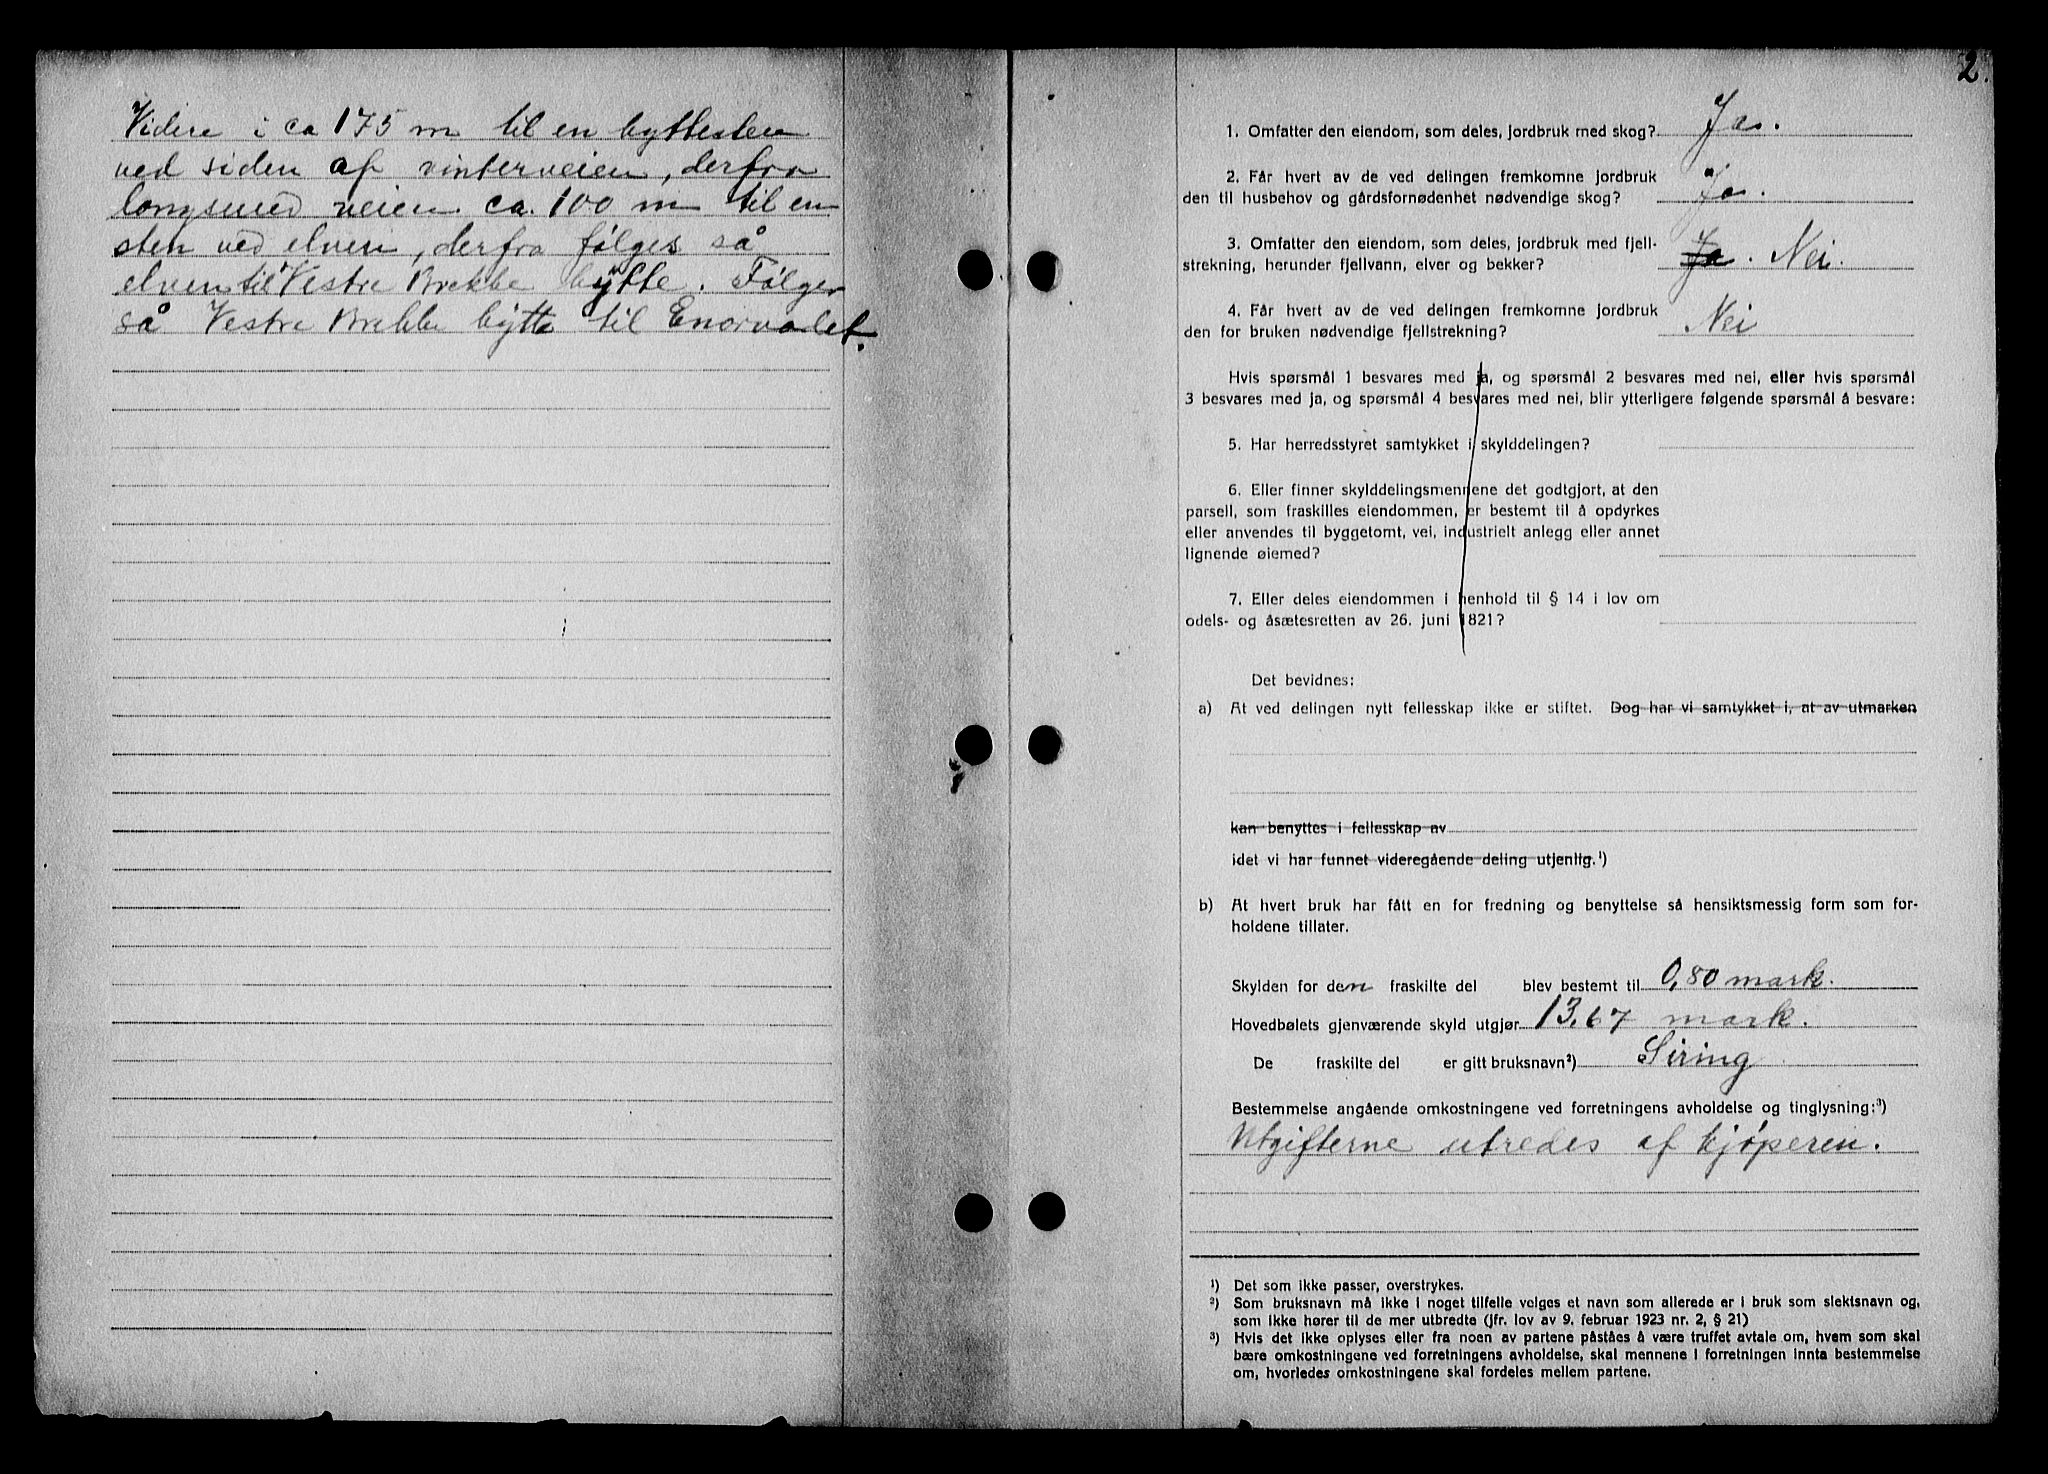 Videre i ca 175 m til en byttesten
ved siden af vinterveien, derfra
langsmed veien ca. 100 m til en
sten ved elven, derfra følges så
elven til Vestre Brekke bytte. Følger
så Vestre Brekke bytte til Enorvalet.
2.
1. Omfatter den eiendom, som deles, jordbruk med skog? Ja.
2. Får hvert av de ved delingen fremkomne jordbruk
den til husbehov og gårdsfornødenhet nødvendige skog? Ja.
3. Omfatter den eiendom, som deles, jordbruk med fjell-
strekning, herunder fjellvann, elver og bekker? Ja. Nei.
4. Får hvert av de ved delingen fremkomne jordbruk
den for bruken nødvendige fjellstrekning? Nei
Hvis spørsmål 1 besvares med ja, og spørsmål 2 besvares med nei, eller hvis spørsmål
3 besvares med ja, og spørsmål 4 besvares med nei, blir ytterligere følgende spørsmål å besvare:
5. Har herredsstyret samtykket i skylddelingen?
6. Eller finner skylddelingsmennene det godtgjort, at den
parsell, som fraskilles eiendommen, er bestemt til å opdyrkes
eller anvendes til byggetomt, vei, industrielt anlegg eller annet
lignende øiemed?
7. Eller deles eiendommen i henhold til § 14 i lov om
odels- og åsætesretten av 26. juni 1821?
Det bevidnes:
a) At ved delingen nytt fellesskap ikke er stiftet. Dog har vi samtykket i, at av utmarken
kan benyttes i fellesskap av
idet vi har funnet videregående deling utjenlig.¹)
b) At hvert bruk har fått en for fredning og benyttelse så hensiktsmessig form som for-
holdene tillater.
Skylden for den fraskilte del blev bestemt til 0,80 mark.
Hovedbølets gjenværende skyld utgjør 13,67 mark.
De fraskilte del er gitt bruksnavn²) Siring
Bestemmelse angående omkostningene ved forretningens avholdelse og tinglysning:³)
Utgifterne utredes af kjøperen.
¹) Det som ikke passer, overstrykes.
²) Som bruksnavn må ikke i noget tilfelle velges et navn som allerede er i bruk som slektsnavn og,
som ikke hører til de mer utbredte (jfr. lov av 9. februar 1923 nr. 2, § 21)
³) Hvis det ikke oplyses eller fra noen av partene påståes å være truffet avtale om, hvem som skal
bære omkostningene ved forretningens avholdelse, skal mennene i forretningen innta bestemmelse
om, hvorledes omkostningene skal fordeles mellem partene.